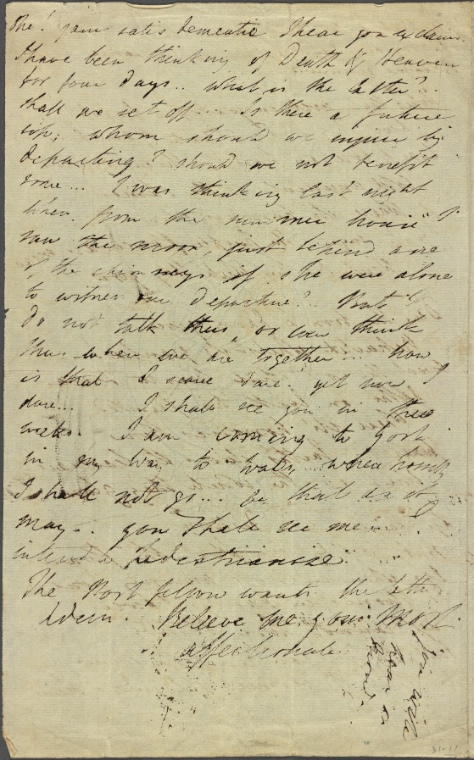 Oh! jam satis dementiæ I hear you exclaim.
I have been thinking of Death & Heaven
for four days.. What is the latter?
shall we set off... Is there a future
life; whom should we injure by
departing? should we not benefit
some... I was thinking last night
when from the summer house I
saw the moon, just behind one
of the chimneys if she were alone
to witness our departure? But I
do not talk thus, or even think
thus when we are together... how
is that I scarce dare. yet now I
dare... I shall see you in three
weeks. I am coming to York
in my way to Wales where possibly
I shall not go... be that as it
may.. you shall see me.. I
intend to pedestrianize..
The Post fellow wants the letter
Adieu. Believe me your most
affectionate
You will
hear in